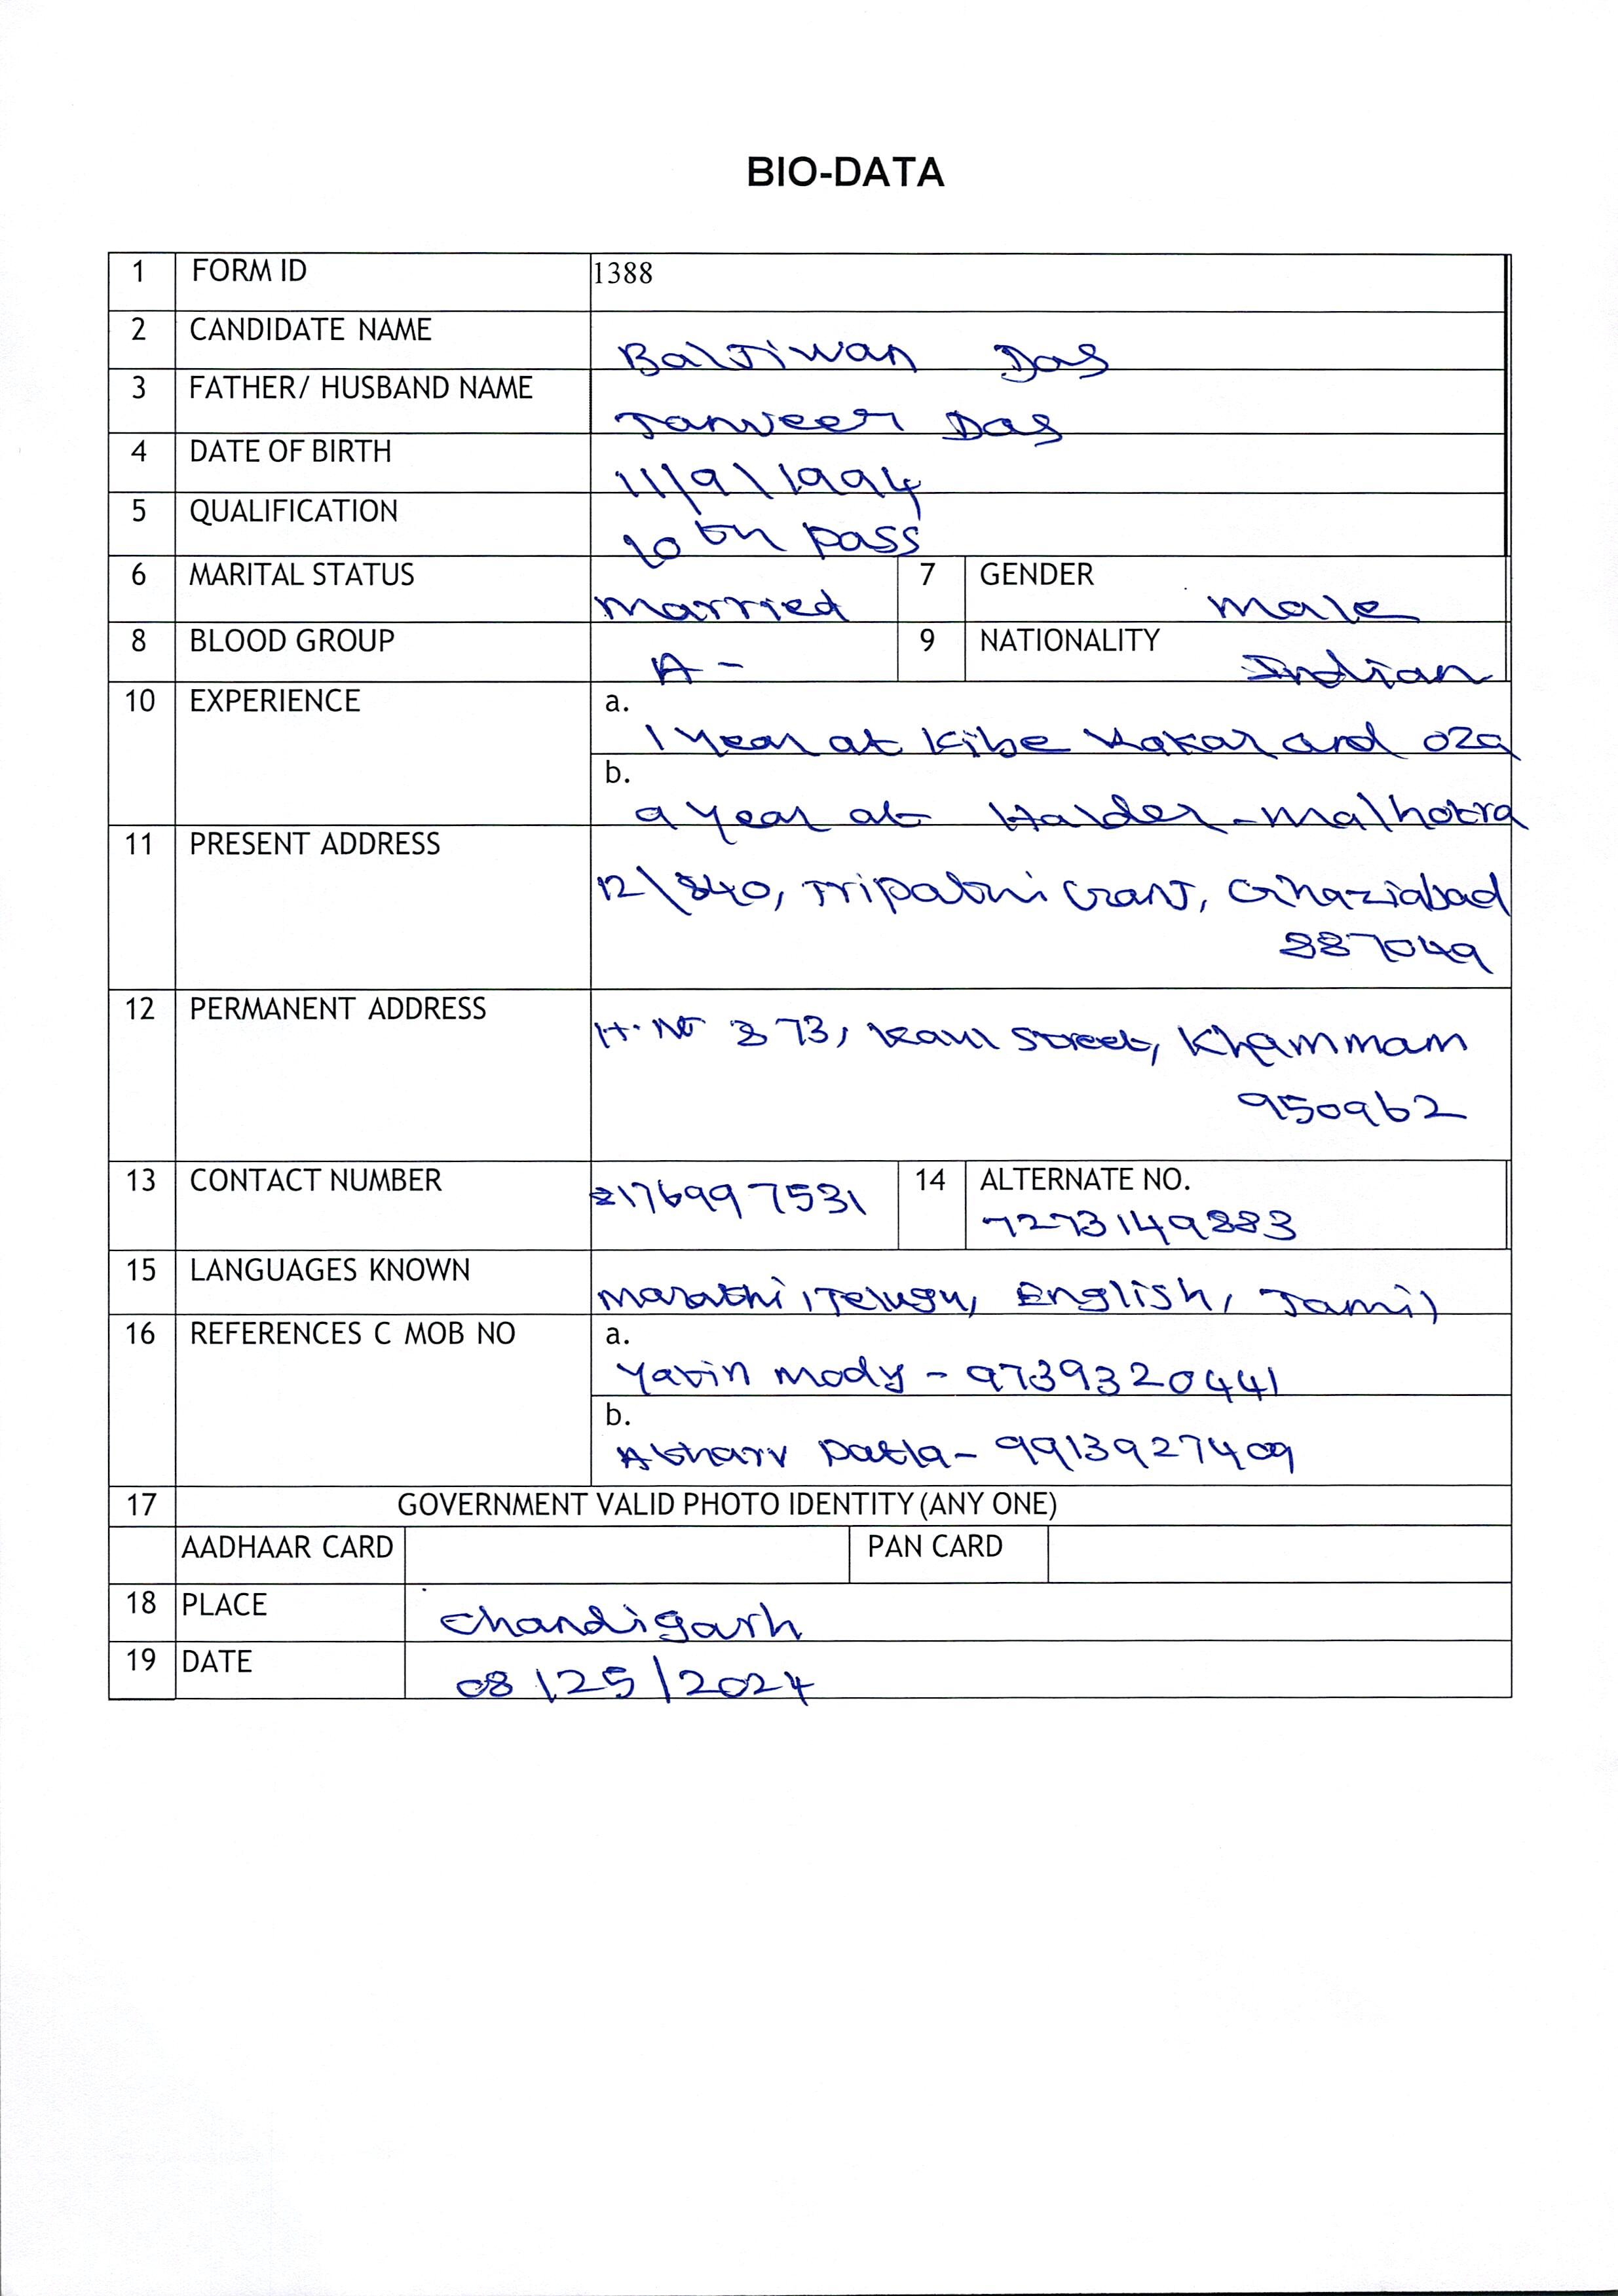 BIO-DATA
1 FORM ID 1388
2 CANDIDATE NAME Baljiwan Das
3 FATHER/ HUSBAND NAME Tanveer Das
4 DATE OF BIRTH 11/9/1994
5 QUALIFICATION 10th pass
6 MARITAL STATUS married 7 GENDER male
8 BLOOD GROUP A- 9 NATIONALITY Indian
10 EXPERIENCE a.
1 Year at Kibe Kakar and oza
b.
9 year at Halder-malhotra
11 PRESENT ADDRESS
12/840, Tripathi Ganj, Ghaziabad
887049
12 PERMANENT ADDRESS
H.No 373, Kaul Street, Khammam
950962
13 CONTACT NUMBER 8176997531 14 ALTERNATE NO.
7273149883
15 LANGUAGES KNOWN marathi, Telugu, English, Tamil
16 REFERENCES C MOB NO a.
Yatin mody - 9739320441
b.
Atharv Datla - 9913927409
17 GOVERNMENT VALID PHOTO IDENTITY (ANY ONE)
AADHAAR CARD PAN CARD
18 PLACE Chandigarh
19 DATE 08/25/2024